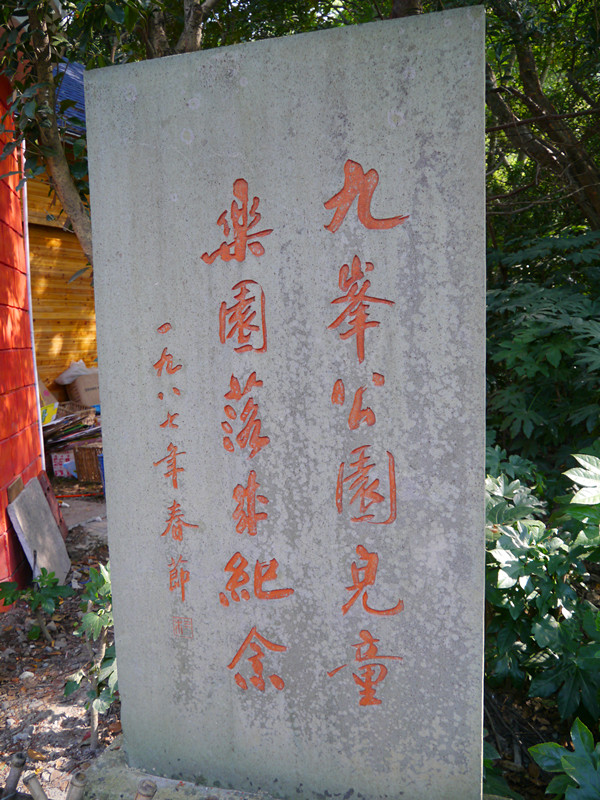 九峯公園兒童
樂園落成紀念
一九八七年春節